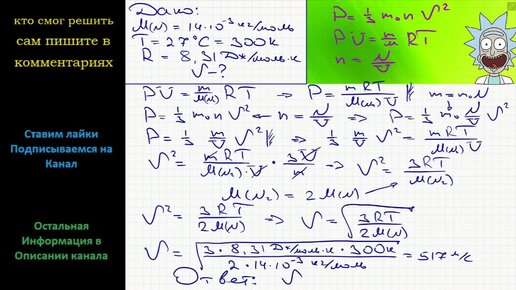 кто смог решить
сам пишите в
комментариях
Ставим лайки
Подписываемся на
Канал
Остальная
Информация в
Описании канала
Дано:
M(N) = 14·10⁻³ кг/моль
T = 27°C = 300к
R = 8,31 Дж/моль·к
V - ?
P = 1/3 m₀ n V²
P U = m/M RT
n = N/U
P U = m/M(N₂) RT → P = mRT/M(N₂)U m = m₀N
P = 1/3 m₀ n V² ← n = N/U → P = 1/3 m₀ N/U V²
P = 1/3 m/U V² ⇒ 1/3 m/U V² = mRT/M(N₂)U
V² = mRT/M(N₂)U · 3U/m ⇒ V² = 3RT/M(N₂)
M(N₂) = 2M(N)
V² = 3RT/2M(N) → V = √3RT/2M(N)
V = √3·8,31 Дж/моль·к·300к/2·14·10⁻³ кг/моль = 517 м/с
Ответ: V